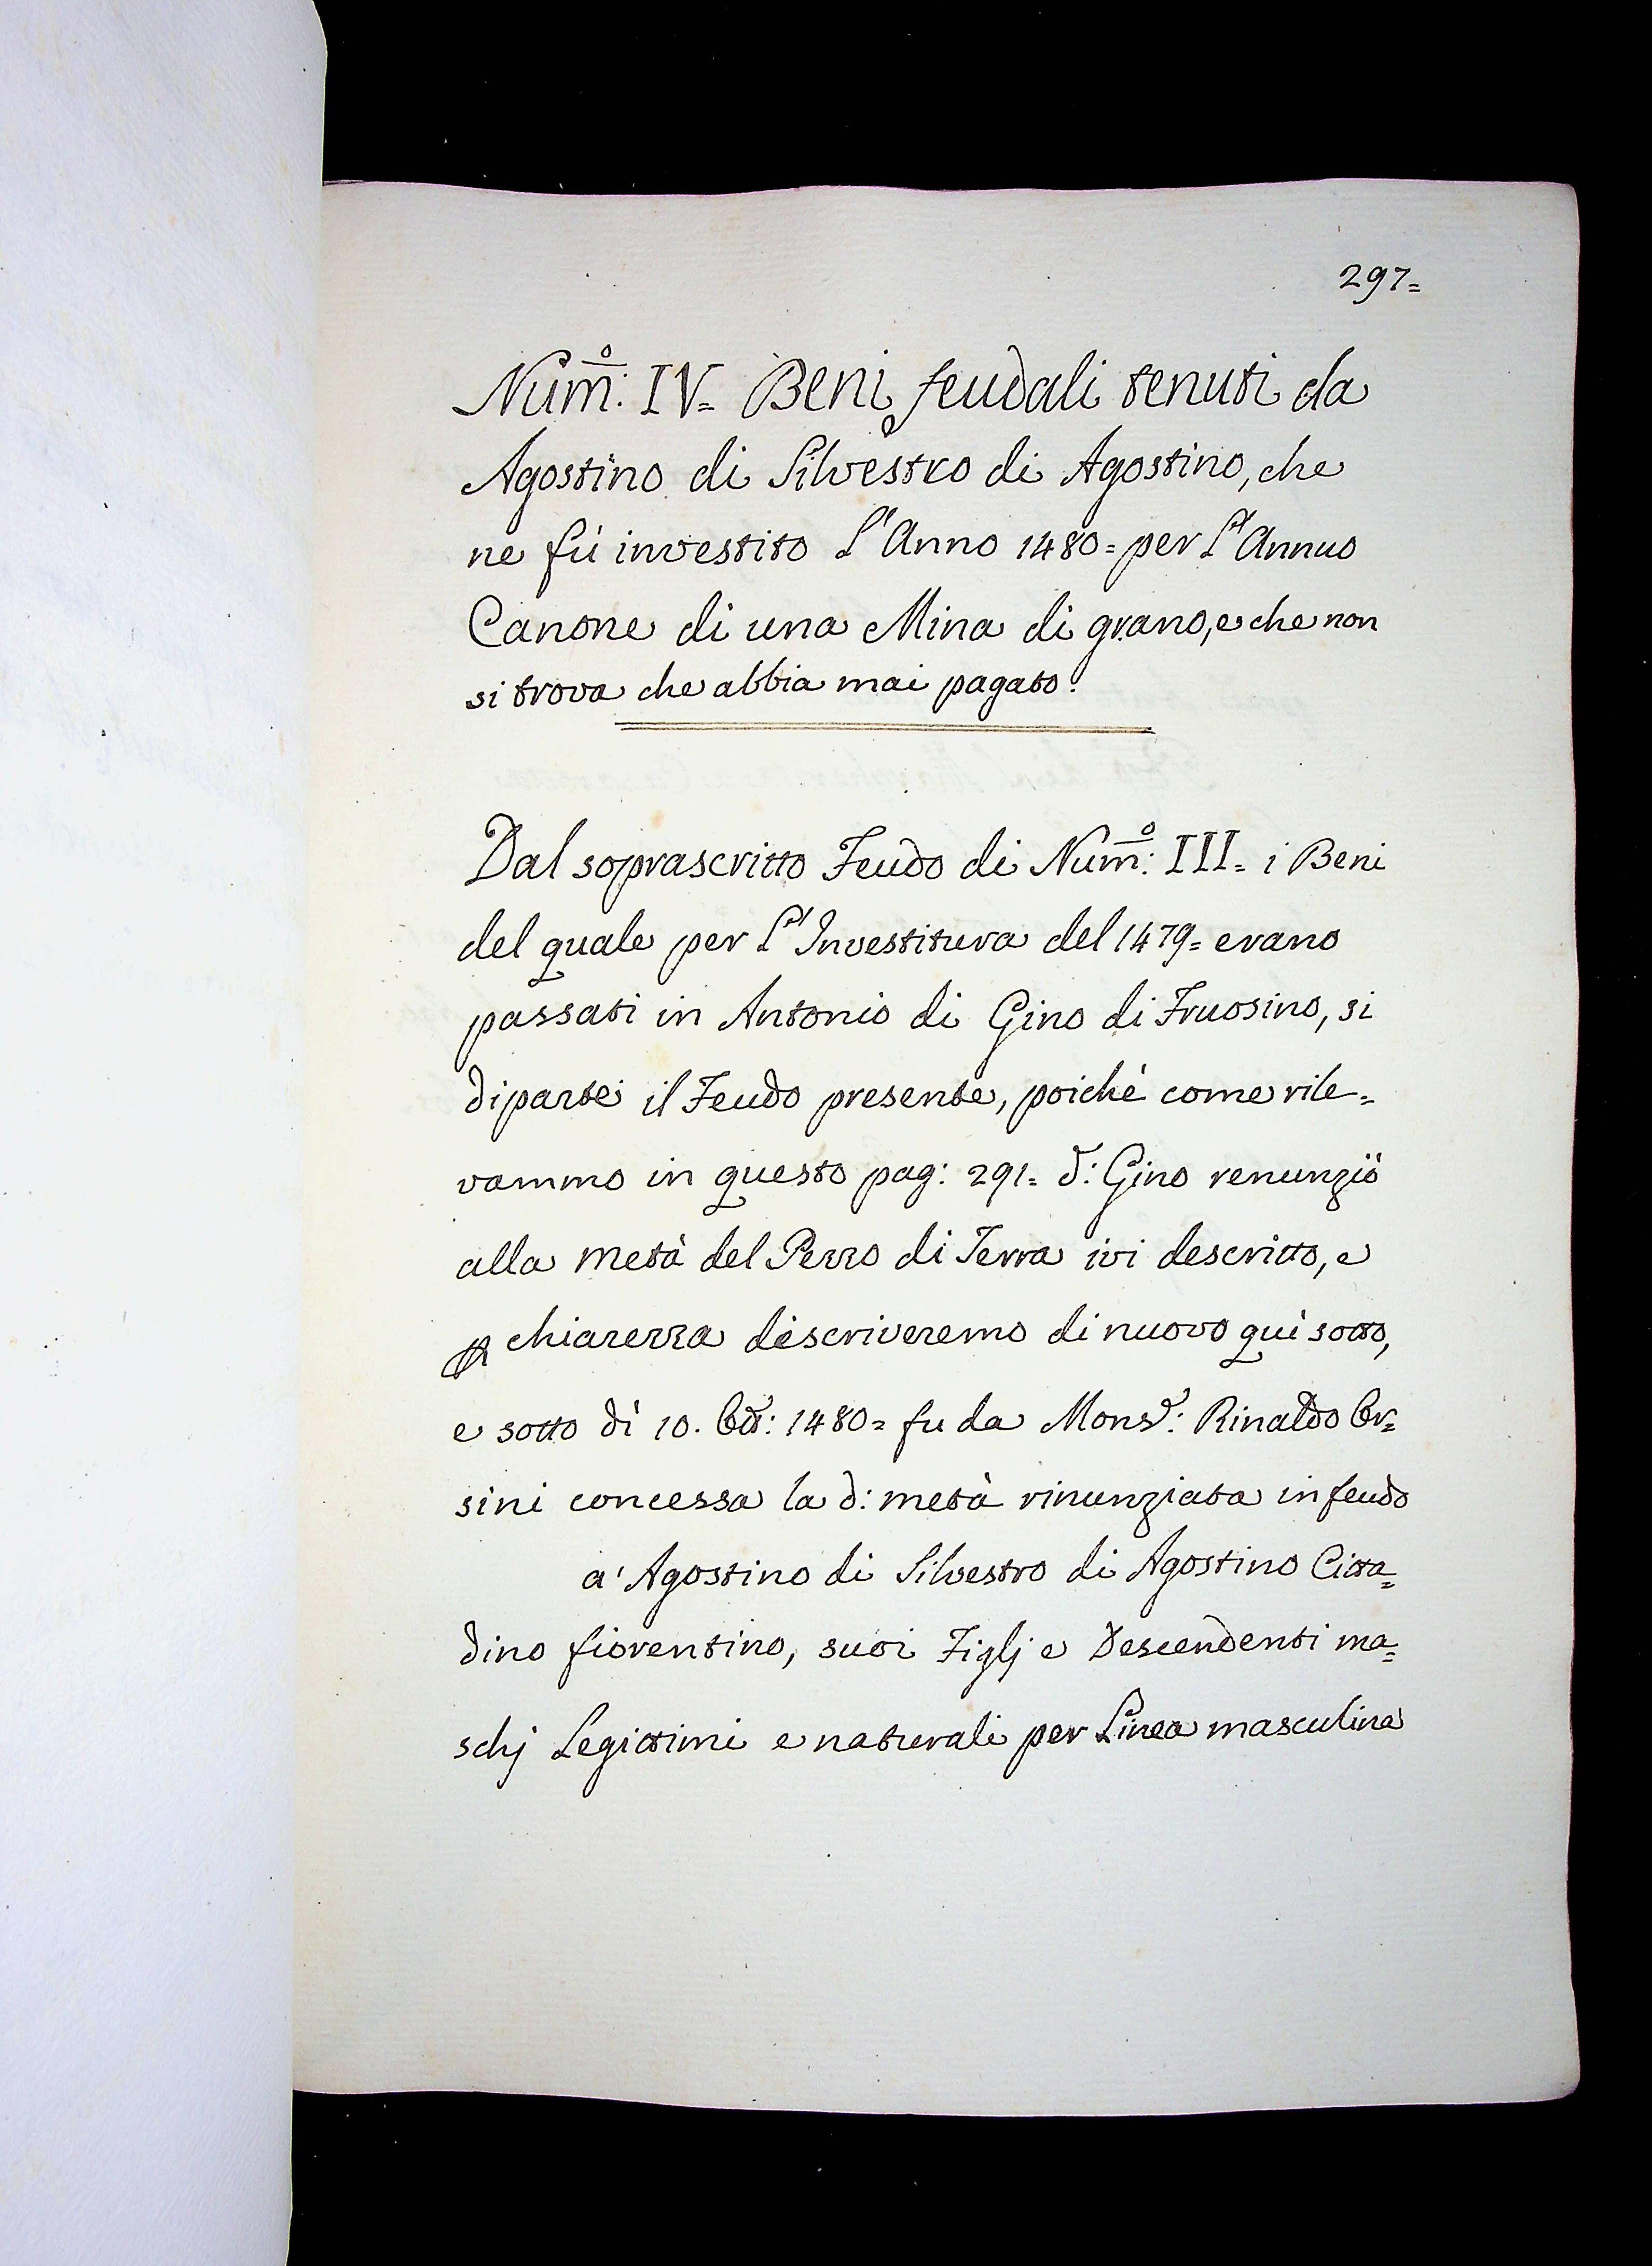 297=
Num̅o: IV= Beni feudali tenuti da
Agostino di Silvestro di Agostino, che
ne fù investito L'Anno 1480= per L'Annuo
Canone di una Mina di grano, e che non
si trova che abbia mai pagato.
Dal soprascritto Feudo di Num̅o: III= i Beni
del quale per L'Investitura del 1479= erano
passati in Antonio di Gino di Fruosino, si
diparte il Feudo presente, poichè come rile=
vammo in questo pag: 291= d: Gino renunziò
alla metà del Pezzo di Terra ivi descritto, e
ꝑ chiarezza descriveremo di nuovo quì sotto,
e sotto dì 10. 1480= fu da Monsr: Rinaldo Or=
sini concessa la d: metà rinunziata in feudo
a' Agostino di Silvestro di Agostino Citta=
dino fiorentino, suoi Figlj e Descendenti ma=
schj Legittimi e naturali per Linea masculina